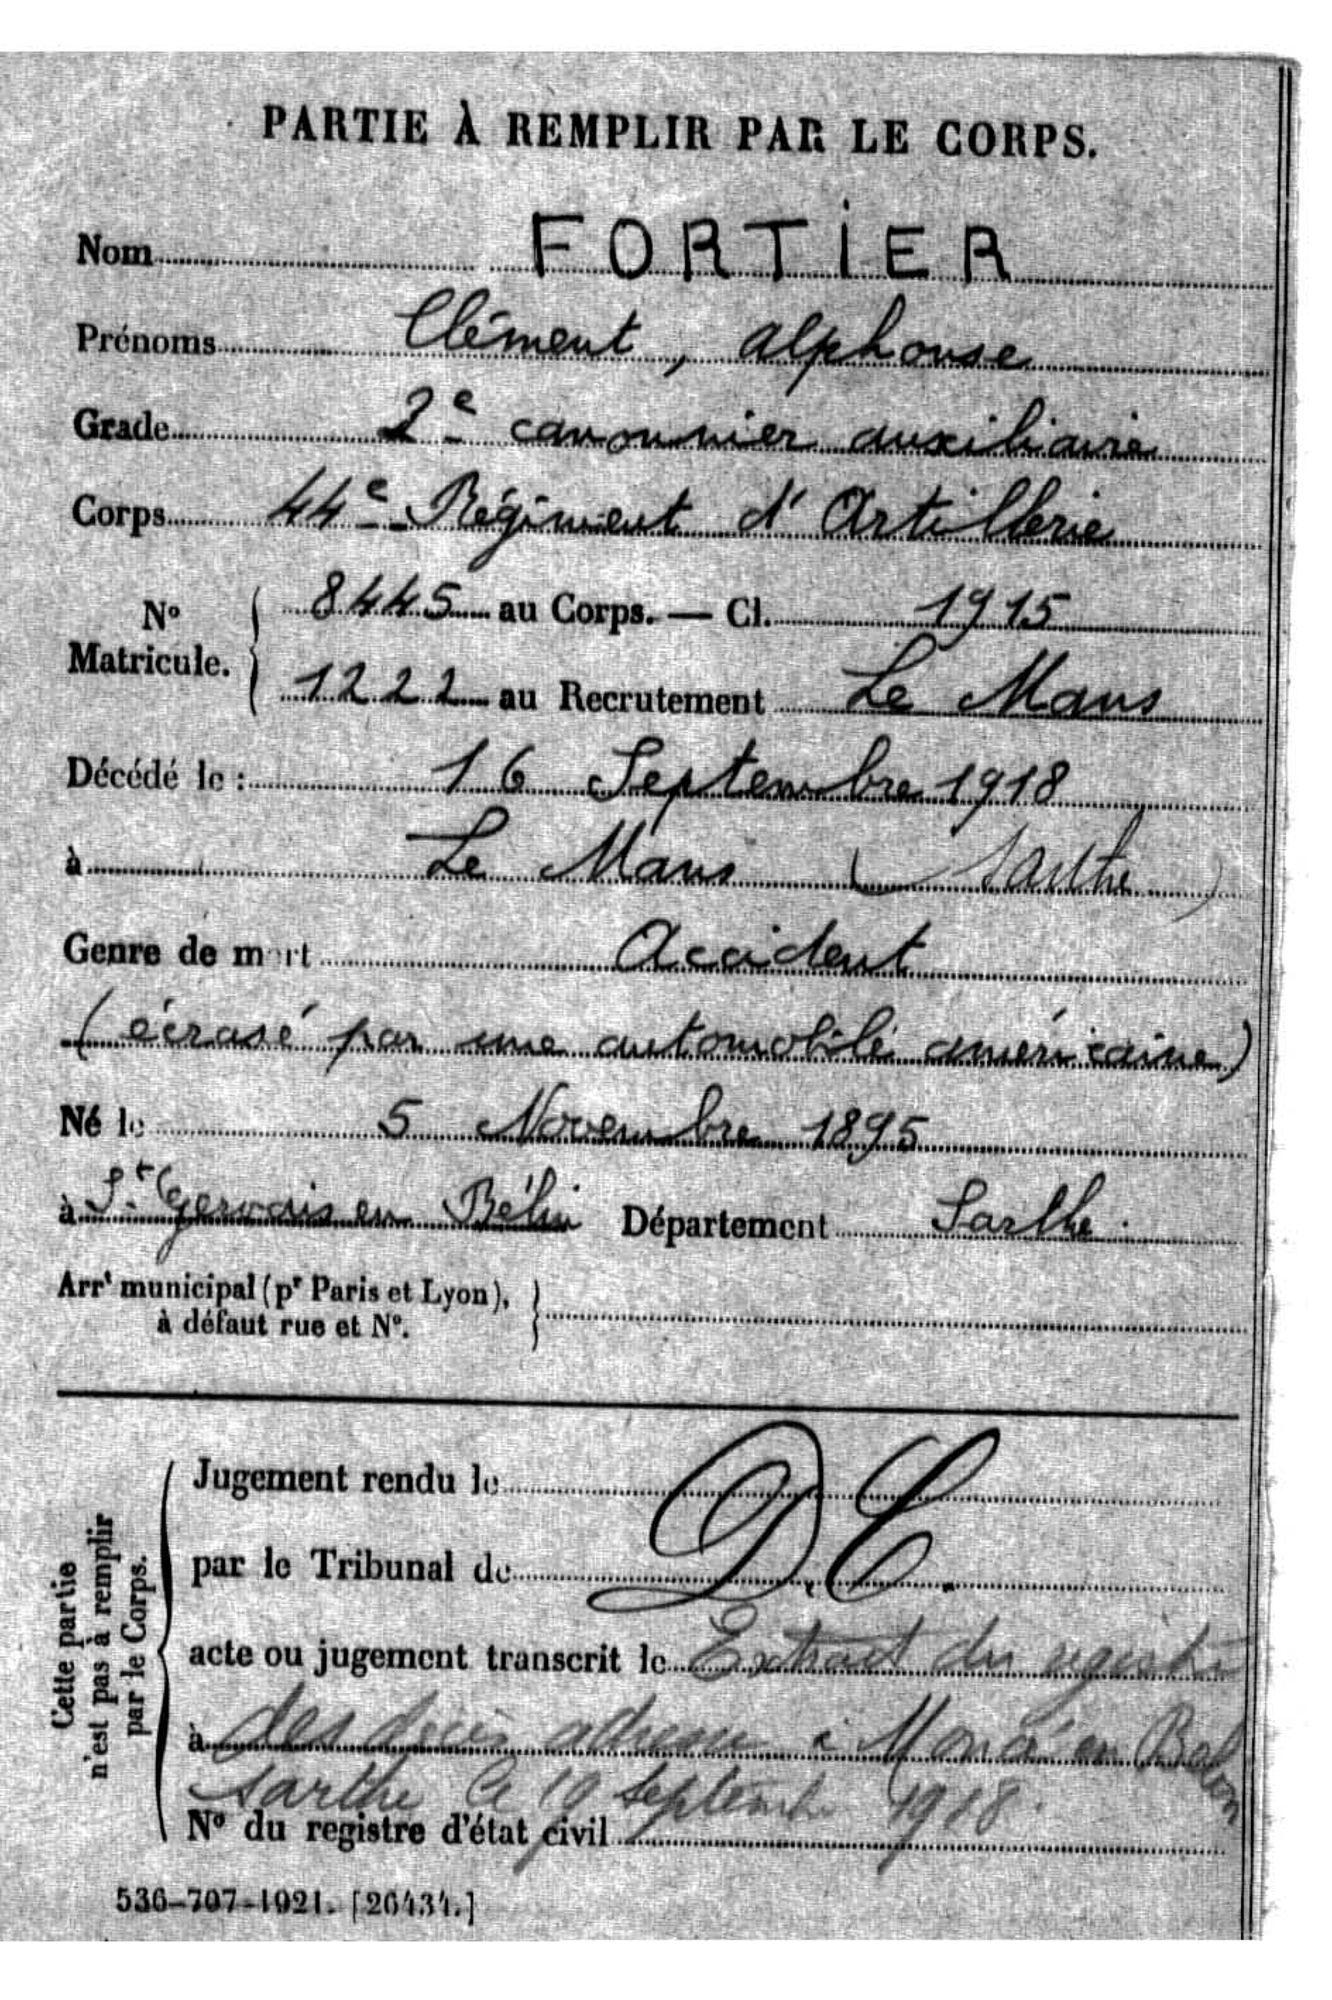 PARTIE À REMPLIR PAR LE CORPS.
Nom FORTIER
Prénoms Clément, Alphonse
Grade 2e canonnier auxiliaire
Corps 44e Régiment d'Artillerie
No Matricule. { 8445 au Corps. — Cl. 1915
1222 au Recrutement Le Mans
Décédé le : 16 Septembre 1918
à Le Mans (Sarthe)
Genre de mort Accident
(écrasé par une automobile américaine)
Né le 5 Novembre 1895
à St Gervais en Bélin Département Sarthe.
Arrt municipal (pr Paris et Lyon), }
à défaut rue et No.
Cette partie
n'est pas à remplir
par le Corps.
Jugement rendu le
par le Tribunal de D.C.
acte ou jugement transcrit le Extrait du registre
à des décès adressé à Moncé en Belin
Sarthe le 19 septembre 1918.
No du registre d'état civil
536-707-1921. [26434.]